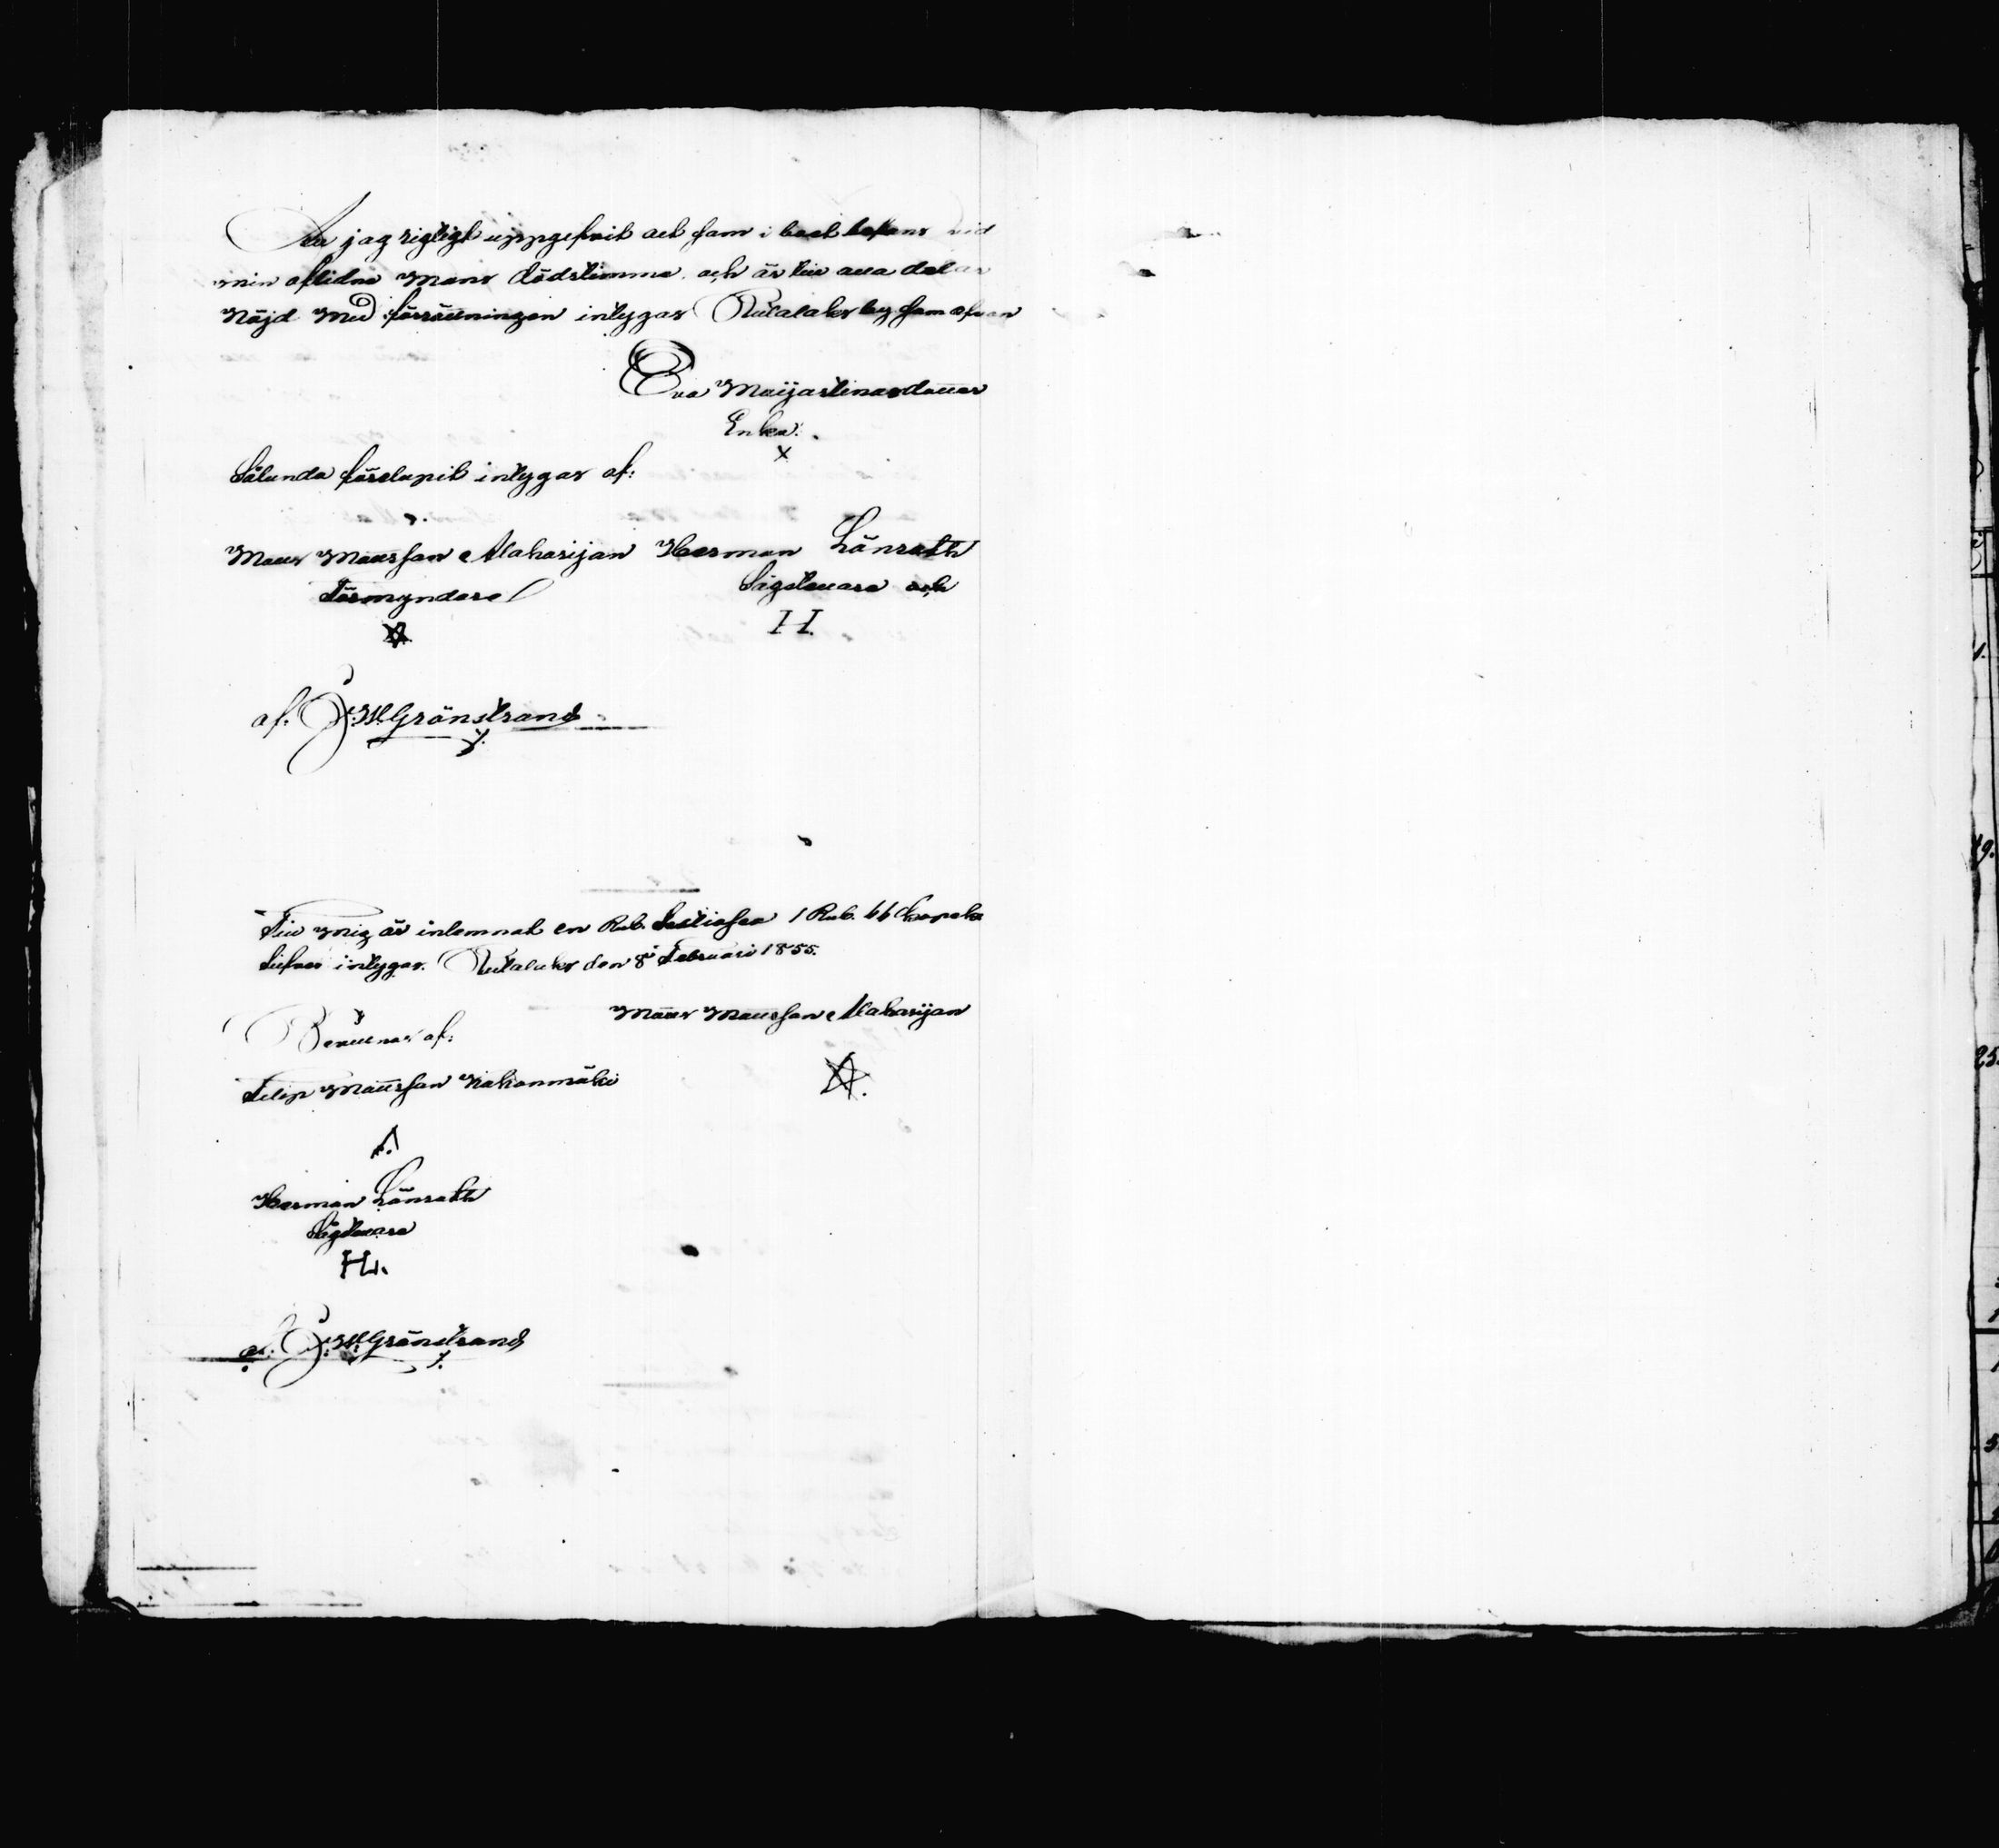 Att jag rigtigt uppgifvit alt som i boet befans vid
min aflidne Mans dödstimma, och är till alla delar
Nöjd Med förrättningen intygar Rutalaks by som ofvan
Eva Maijastinasdotter
Enka.
X
Sålunda förelupit intygar af:
Matts Mattsson Alaharijan Herman Lönroth
Förmyndare Sigstuare och
H.
af. J: W: Grönstrand
Till Mig är inlemnat en Rub. 1 Rub. 66 Kopek
Silfver intygar. Rutalaks den 8 Februari 1855.
Matts Mattsson Alaharijan
Bevittnar af:
Filip Mattsson Kakonmäki
Herman Lönroth
Sigstuare
HL.
af. J: W: Grönstrand